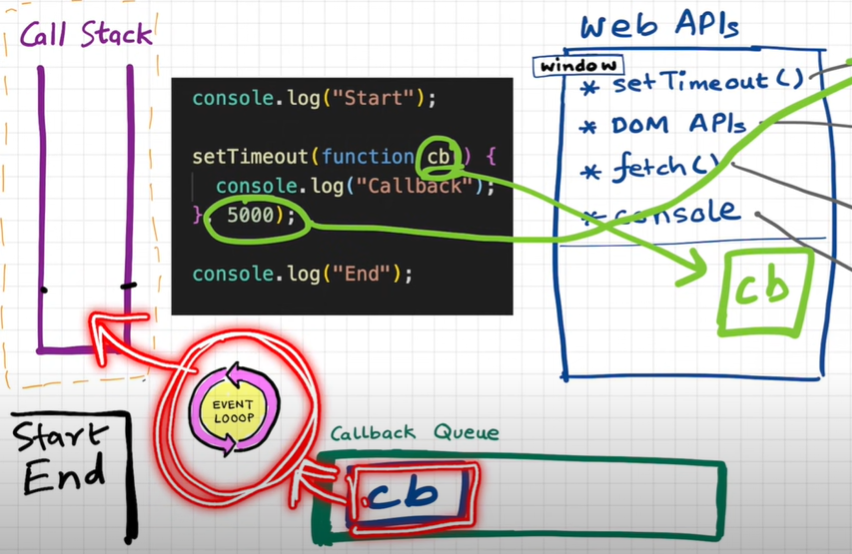 Call Stack
console.log("Start");
setTimeout(function cb() {
console.log("Callback");
}, 5000);
console.log("End");
Web APIs
window
* setTimeout()
* DOM APIs
* fetch()
* console
cb
Start
End
EVENT
LOOOP
Callback Queue
cb